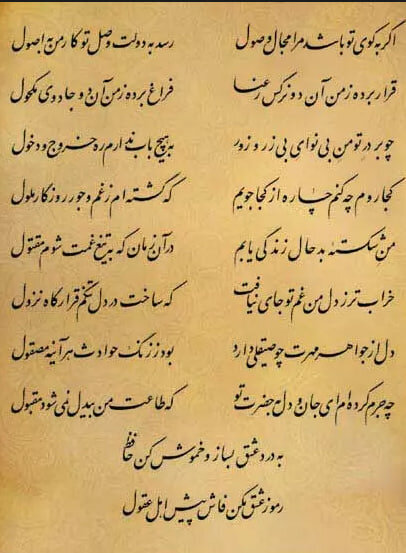 اگر به کوی تو باشد مرا مجال وصول رسد به دولت وصل تو کار من به اصول
قرار برده ز من آن دو نرگس رعنا فراغ برده ز من آن دو جادوی مکحول
چو بر در تو من بی نوای بی زر و زور به هیچ باب ندارم ره خروج و دخول
کجا روم چه کنم چاره از کجا جویم که گشته ام ز غم و جور روزگار ملول
من شکسته بدحال زندگی یابم در آن زمان که به تیغ غمت شوم مقتول
خرابتر ز دل من غم تو جای نیافت که ساخت در دل تنگم قرارگاه نزول
دل از جواهر مهرت چو صیقلی دارد بود ز زنگ حوادث هر آینه مصقول
چه جرم کرده ام ای جان و دل به حضرت تو که طاعت من بیدل نمی شود مقبول
به درد عشق بساز و خموش کن حافظ
رموز عشق مکن فاش پیش اهل عقول